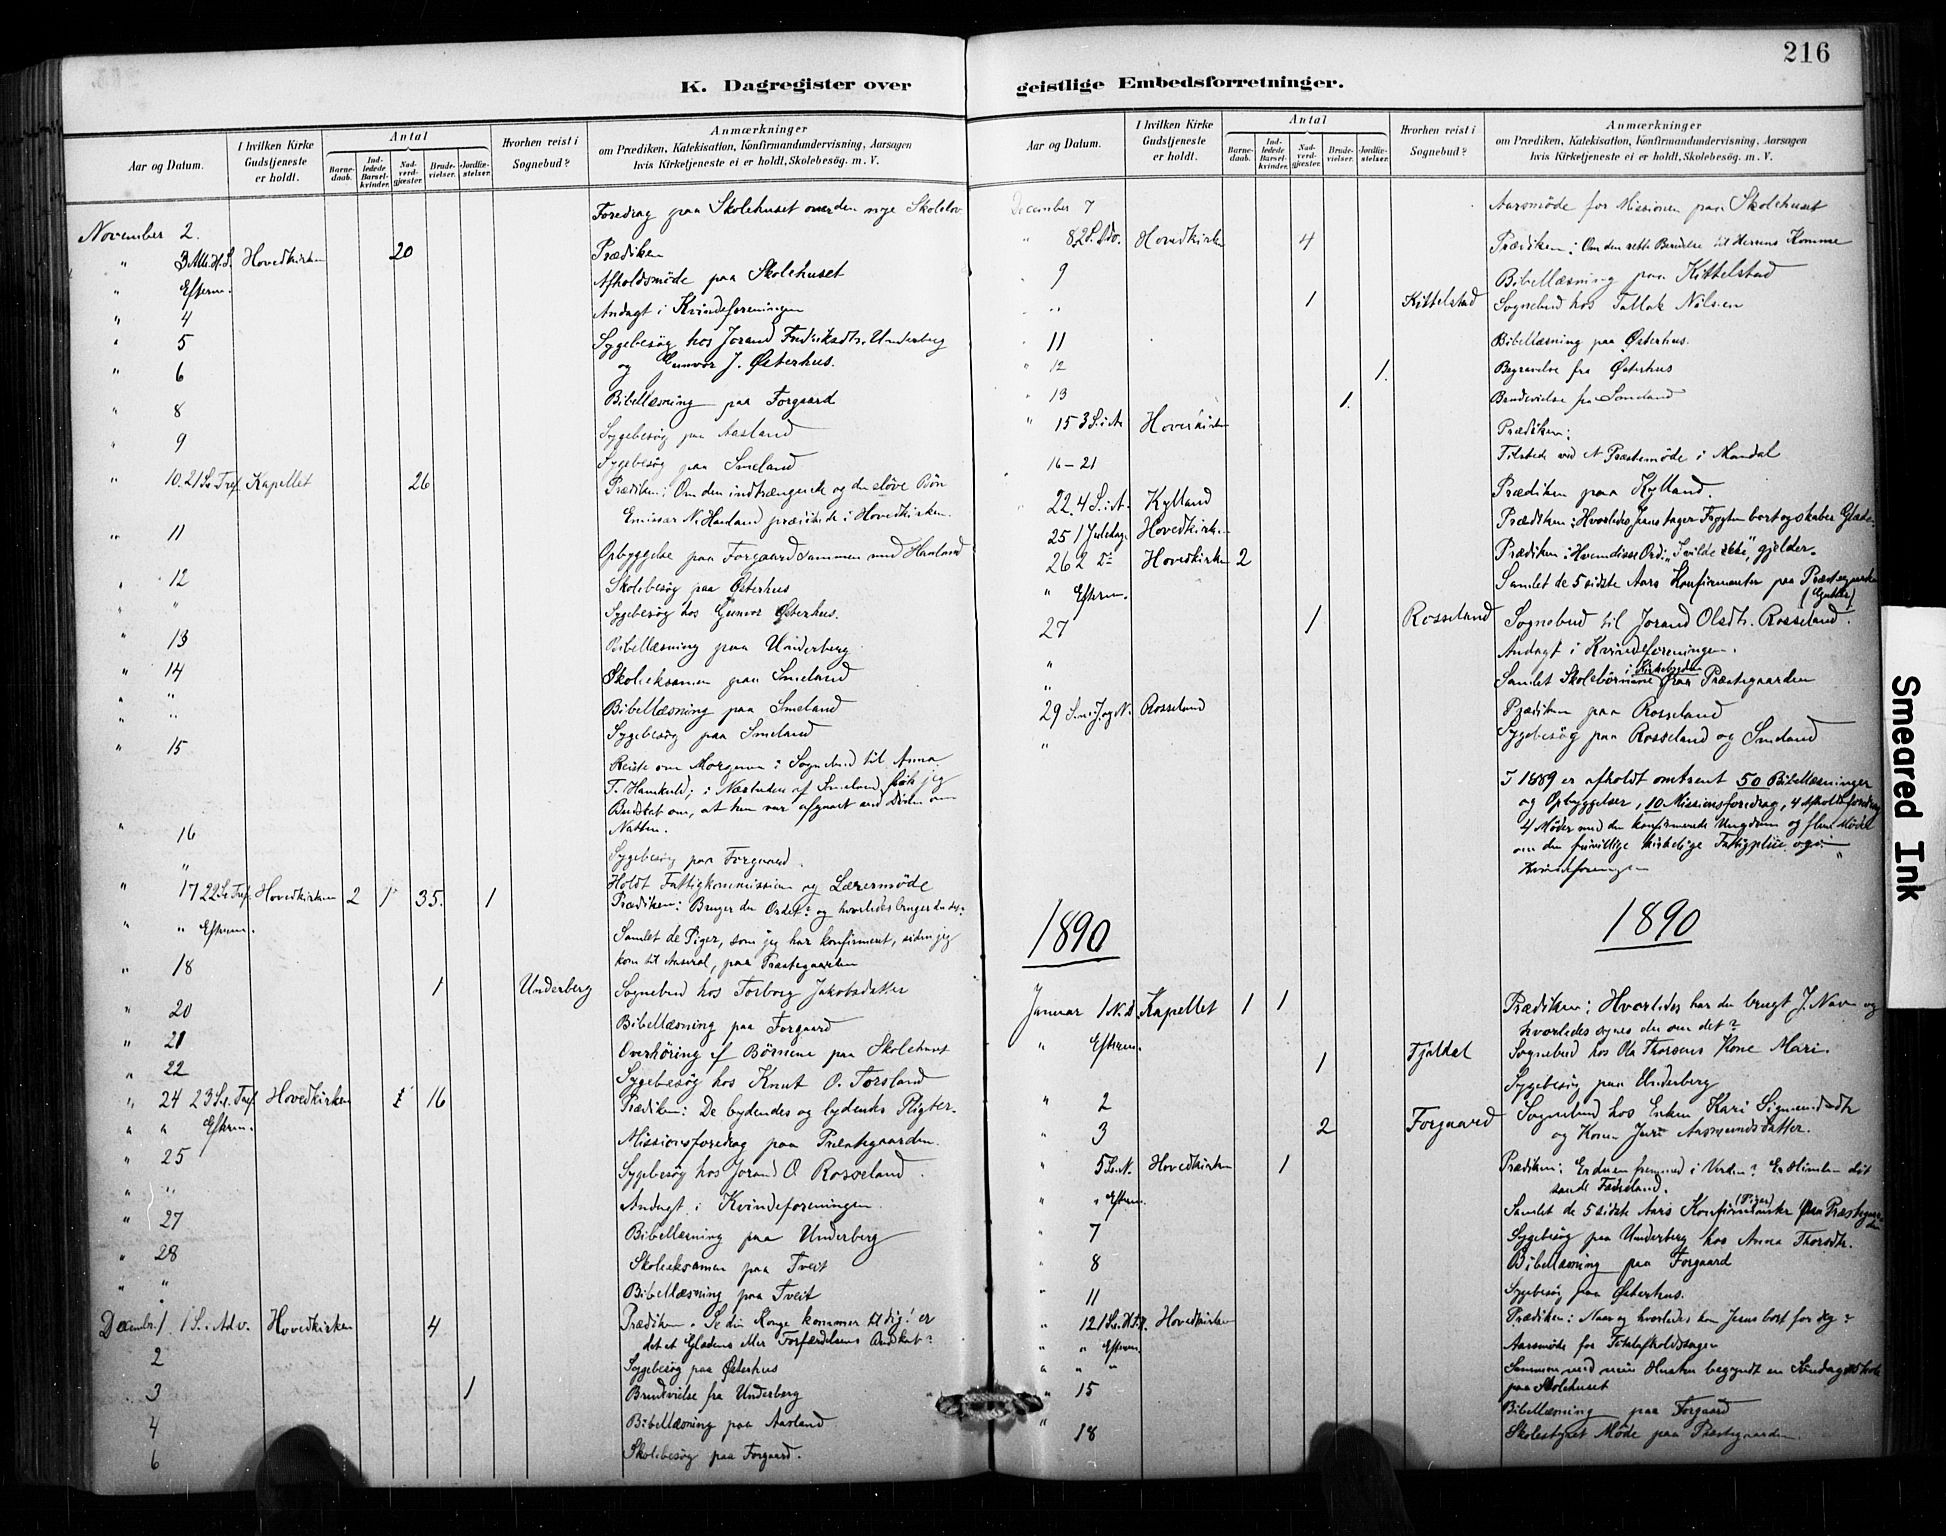 216
K. Dagregister over geistlige Embedsforretninger.
Aar og Datum.
I hvilken Kirke Gudstjeneste er holdt.
Antal
Barnedaab.
Indledede Barselkvinder.
Nadverdgjæster.
Brudevielser.
Jordfæstelser.
Hvorhen reist i Sognebud?
Anmærkninger
om Prædiken, Katekisation, Konfirmandundervisning, Aarsagen
hvis Kirketjeneste ei er holdt, Skolebesøg. m. V.
November 2. Foredrag paa Skolehuset over den nye Skolelov
" 3 Alle H. S. Hovedkirken 20 Prædiken
" Efterm. Afholdsmøde paa Skolehuset
" 4 Andagt i Kvindeforeningen
" 5 Sygebesøg hos Jorand Fredriksdtr. Underberg
og Gunvor J. Østerhus.
" 6 Bibellæsning paa Forgaard
" 8 Sygebesøg paa Aasland
" 9 Sygebesøg paa Smeland
" 10. 21 S. e. Tref. Kapellet 26 Prædiken: Om den indtrængende og den sløve Bøn
Emissær N. Haaland prædikede i Hovedkirken.
" 11 Opbyggelse paa Forgaard sammen med Haaland
" 12 Skolebesøg paa Østerhus
" " Sygebesøg hos Gunvor Østerhus.
" 13 Bibellæsning paa Underberg
" 14 Skoleeksamen paa Smeland
" " Bibellæsning paa Smeland
" " Sygebesøg paa Smeland
" 15 Reiste om Morgenen i Sognebud til Anna
T. Hamkold; i Nærheden af Smeland fik jeg
Budskab om, at hun var afgaaet ved Døden om
Natten.
" 16 Sygebesøg paa Forgaard.
" Holdt Fattigkommission og Lærermøde
" 17 22 S. e. Tref. Hovedkirken 2 1 35. 1 Prædiken: Bruger du Ordet? og hvorledes bruger du det?
" " Efterm. Samlet de Piger, som jeg har konfirmeret, siden jeg
kom til Aaseral, paa Præstegaarden
" 18 1 Underberg Sognebud hos Torborg Jakobsdatter
" 20 Bibellæsning paa Forgaard
" 21 Overhøring af Børnene paa Skolehuset
" 22 Sygebesøg hos Knut O. Torsland
" 24 23 S. e. Tref. Hovedkirken 16 Prædiken: De bydendes og lydendes Pligter.
" " Efterm. Missionsforedrag paa Præstegaarden.
" 25 Sygebesøg hos Jorand O Rosseland.
" " Andagt i Kvindeforeningen.
" 27 Bibellæsning paa Underberg
" 28 Skoleeksamen paa Tveit
" " Bibellæsning paa Tveit
Decembr. 1. 1 S. i Adv. Hovedkirken 4 Prædiken. Se din Konge kommer til dig! er
det et Glædens eller Forfærdelsens Budskab?
2 Sygebesøg paa Østerhus
3 1 Brudevielse fra Underberg
4 Bibellæsning paa Aasland
6 Skolebesøg paa Forgaard.
Aar og Datum.
I hvilken Kirke Gudstjeneste er holdt.
Antal
Barnedaab.
Indledede Barselkvinder.
Nadverdgjæster.
Brudevielser.
Jordfæstelser.
Hvorhen reist i Sognebud?
Anmærkninger
om Prædiken, Katekisation, Konfirmandundervisning, Aarsagen
hvis Kirketjeneste ei er holdt, Skolebesøg. m. V.
December 7 Aarsmøde for Missionen paa Skolehuset
" 8 2 S. Adv. Hovedkirken 4 Prædiken: Om den rette Beredelse til Herrens Komme
" 9 Bibellæsning paa Kittelstad
" " 1 Kittelstad Sognebud hos Tallak Nilsen
" 11 Bibellæsning paa Østerhus.
" 12 1. Begravelse fra Østerhus
" 13 1. Brudevielse fra Smeland
" 15 3 S. i A. Hovedkirken Prædiken:
16-21 Tilstede ved et Præstemøde i Mandal
" 22. 4 S. i A. Kylland Prædiken paa Kylland.
25 1 Juledag Hovedkirken Prædiken: Hvorledes Jesus tager Frygten bort og skaber Glæde
26 2 Do Hovedkirken 2 Prædiken: Hvem disse Ord: "I vilde ikke", gjelder.
" Efterm. Samlet de 5 sidste Aars Konfirmanter paa Præstegaarden
(Gutter)
27 1 Rosseland Sognebud til Jorand Olsdtr. Rosseland.
" Andagt i Kvindeforeningen.
" Samlet Skolebørnene i Kirkebygden paa Præstegaarden
29 S. m. J. og N. Rosseland Prædiken paa Rosseland
" Sygebesøg paa Rosseland og Smeland
I 1889 er afholdt omtrent 50 Bibellæsninger
og Opbyggelser, 10 Missionsforedrag, 4 Afholdsforedrag
4 Møder med den konfirmerede Ungdom og flere Møder
om den frivillige kirkelige Fattigpleie og i
Kvindeforeningen
1890
1890
Januar 1 N. D. Kapellet 1 1 Prædiken: Hvorledes har du brugt J. Navn og
hvorledes synes du om det?
" Efterm. 1 Fjeldal Sognebud hos Ola Thorsens Kone Mari.
Sygebesøg paa Underberg
" 2 Forgaard Sognebud hos Enken Kari Sigmundsdtr
" 3 2 og Konen Juri Aasmundsdatter.
" 5 S. e. N. Hovedkirken 1 Prædiken: Er du en fremmed i Verden? Er Himlen dit
sande Fædreland.
" " Efterm. Samlet de 5 sidste Aars Konfirmanter (Piger) paa Præstegaarden
" 7 Sygebesøg paa Underberg hos Anna Thorsdtr.
" 8 Bibellæsning paa Forgaard
" 11 Sygebesøg paa Østerhus.
" 12 1 S. e. H. 3 K. Hovedkirken Prædiken: Naar og hvorledes kom Jesus bort for dig?
" " Efterm. Aarsmøde for Totalafholdssagen
" " " Sammen med min Hustru begyndt en Søndagsskole
paa Skolehuset
" 15 Bibellæsning paa Forgaard
" 18 Skolestyret Møde paa Præstegaarden.
Smeared Ink